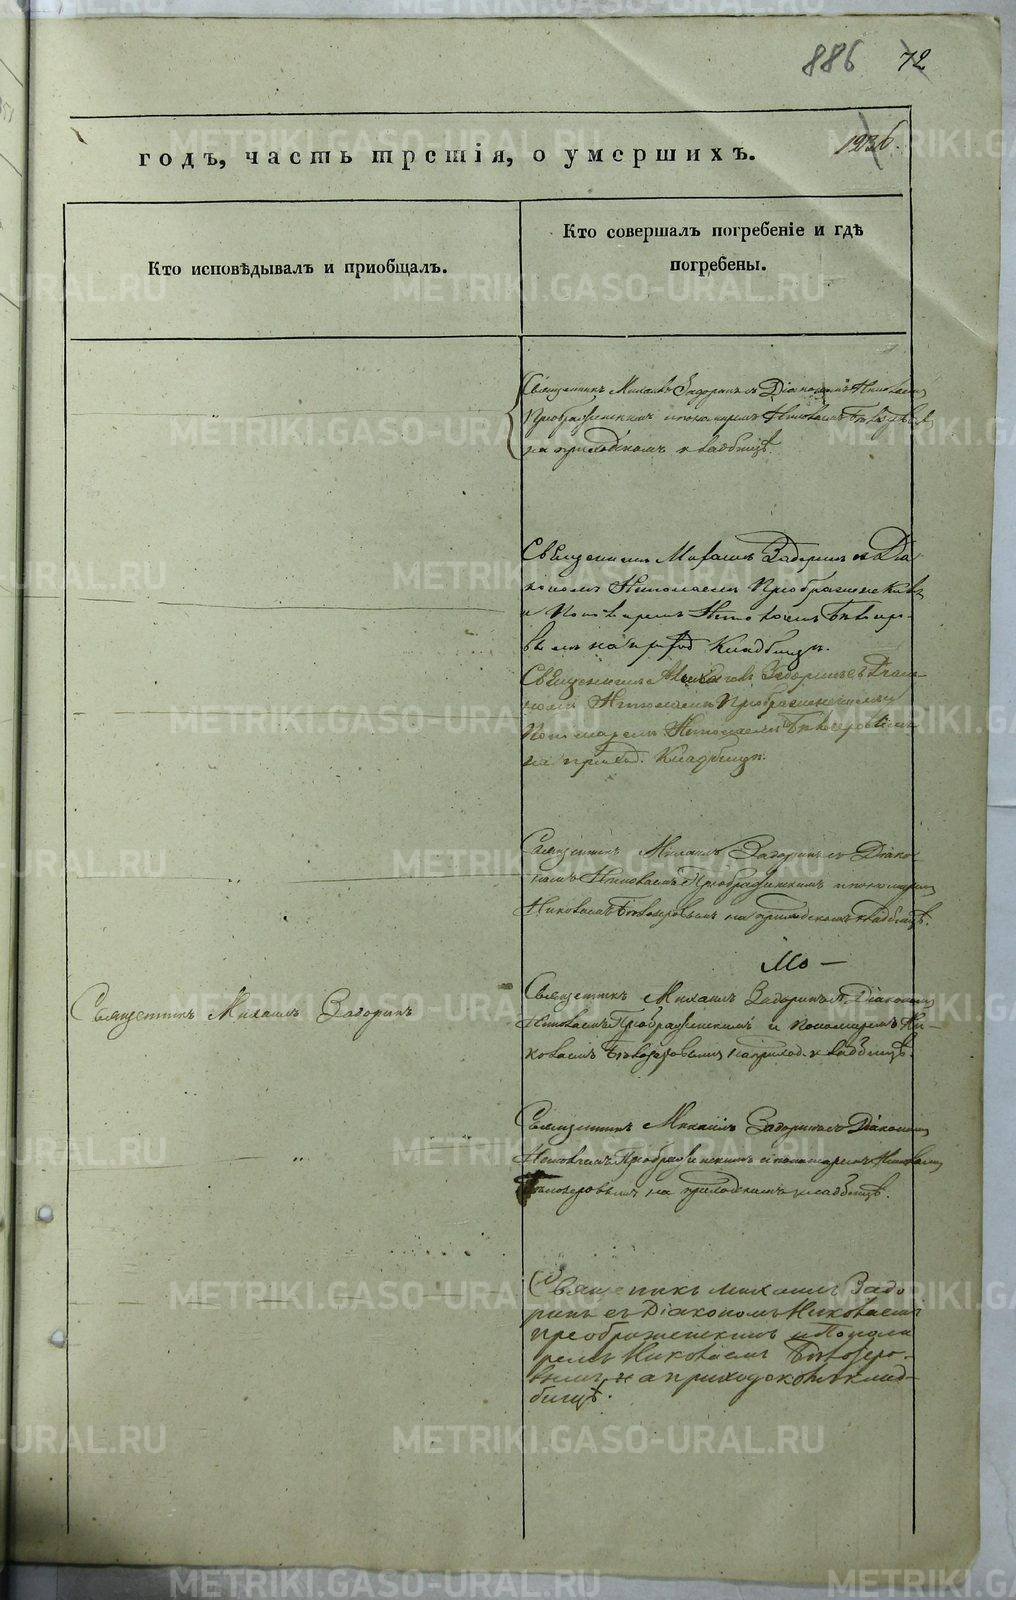 886 72
1236.
годъ, часть третія, о умершихъ.
Кто исповѣдывалъ и приобщалъ.
Кто совершалъ погребеніе и гдѣ
погребены.
Священникъ Михаилъ Задоринъ съ Діакономъ Николаемъ
Преображенскимъ и пономаремъ Николаемъ
на приходскомъ кладбищѣ.
Священникъ Михаилъ Задоринъ съ Діа
кономъ Николаемъ Преображенскимъ
и Пономаремъ Николаемъ Бѣлозеро-
вымъ на приход Кладбищѣ.
Священникъ Михаилъ Задоринъ съ Діако
номъ Николаемъ Преображенскимъ
Пономаремъ Николаемъ Бѣлозеровымъ
на приход. Кладбищѣ.
Священникъ Михаилъ Задоринъ съ Діако
номъ Николаемъ Преображенскимъ и пономаремъ
Николаемъ Бѣлозеровымъ на приходскомъ кладбищѣ.
Мо —
Священникъ Михаилъ Задоринъ
Священникъ Михаилъ Задоринъ съ Діакономъ
Николаемъ Преображенскимъ и Пономаремъ Ни-
колаемъ Бѣлозеровымъ на приход. кладбищѣ.
Священникъ Михаилъ Задоринъ съ Діакономъ
Николаемъ Преображенскимъ и пономаремъ Николаемъ
Бѣлозеровымъ на приходскомъ кладбищѣ.
Священикъ михаилъ Задо
ринъ съ Діакономъ Николаемъ
преображенскимъ и Понома
ремъ Николаемъ Бѣлозеро-
вымъ на приходскомъ клад-
бищѣ.
METRIKI.GASO-URAL.RU